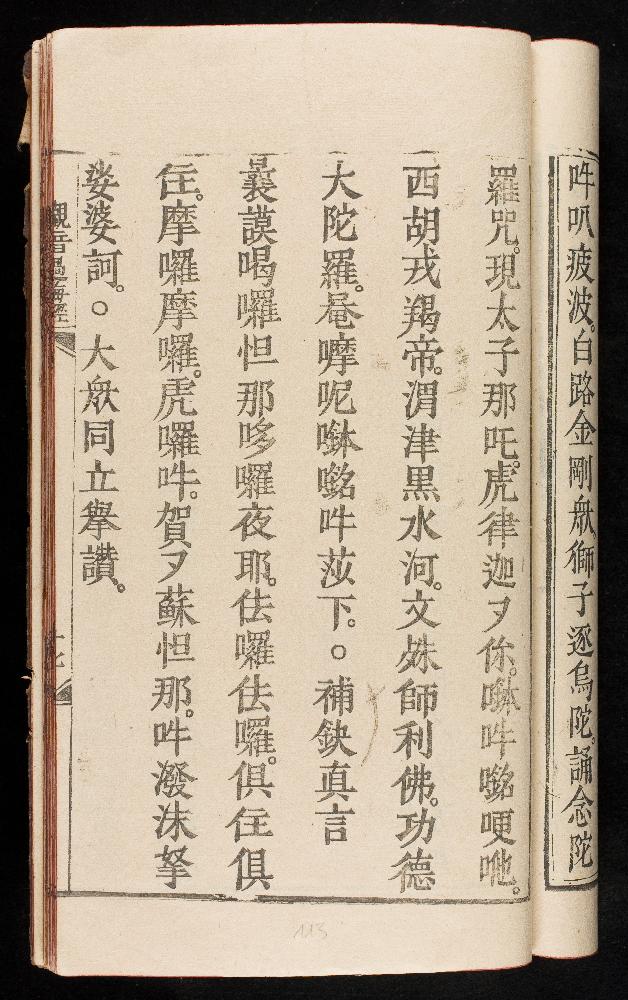 吽叭疲波。白路金剛㒶獅子逐烏陀。誦念陀
羅咒。現太子那吒。虎律迦ヌ你。㘕吽㘈哽吔。
西胡戎羯帝。渭津黒水河。文殊師利佛。功德
大陀羅。菴嘇呢㘕㘈吽莎下。○補鈌真言
曩謨喝囉怛那哆囉夜耶。佉囉佉囉。俱住俱
住。摩囉摩囉。虎囉吽。賀ヌ蘇怛那。吽潑沬拏
娑婆訶。○大㒶同立舉讚。